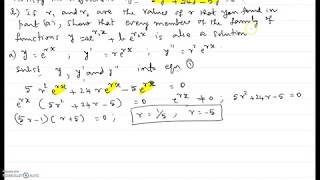 b) is r₁ and r₂ are the values of r that you found in
part (a), show that every member of the family of
functions y = ae^{r₁x} + be^{r₂x} is also a solution
a) y = e^{rx} ; y' = re^{rx} ; y'' = r²e^{rx}
Subst y, y' and y'' into eqn ①
5 r² e^{rx} + 24 r e^{rx} - 5 e^{rx} = 0
e^{rx} (5r² + 24r - 5) = 0 e^{rx} ≠ 0 ; 5r² + 24r - 5 = 0
(5r - 1)(r + 5) = 0 ; r = 1/5 , r = -5